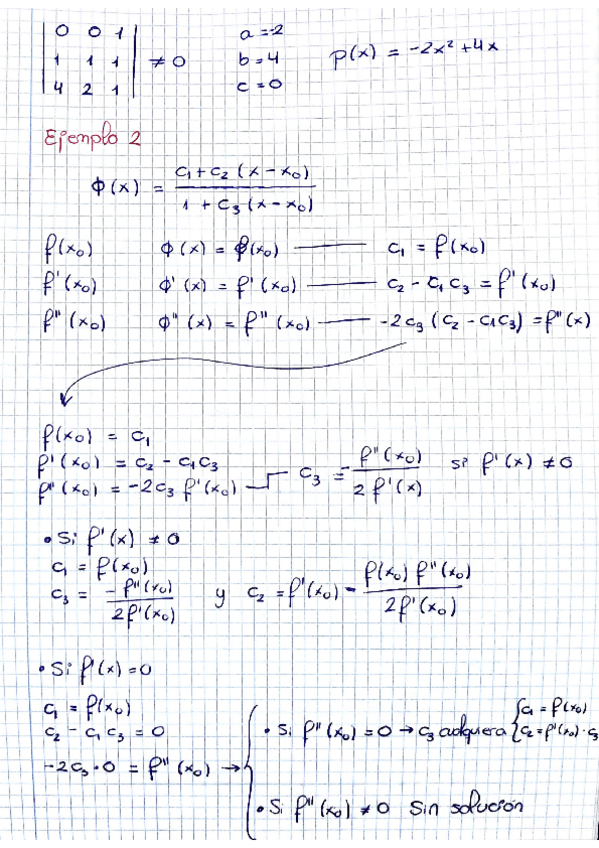 | 0 0 1 | a = -2
| 1 1 1 | ≠ 0 b = 4 p(x) = -2x² + 4x
| 4 2 1 | c = 0
Ejemplo 2
Φ(x) = (c₁ + c₂ (x - x₀)) / (1 + c₃ (x - x₀))
f(x₀) Φ(x) = f(x₀) —— c₁ = f(x₀)
f'(x₀) Φ'(x) = f'(x₀) —— c₂ - c₁c₃ = f'(x₀)
f''(x₀) Φ''(x) = f''(x₀) —— -2c₃ (c₂ - c₁c₃) = f''(x)
f(x₀) = c₁
f'(x₀) = c₂ - c₁c₃
f''(x₀) = -2c₃ f'(x₀) c₃ = -f''(x₀) / 2f'(x) si f'(x) ≠ 0
• Si f'(x) ≠ 0
c₁ = f(x₀)
c₃ = -f''(x₀) / 2f'(x₀) y c₂ = f'(x₀) - f(x₀) f''(x₀) / 2f'(x₀)
• Si f'(x) = 0
c₁ = f(x₀)
c₂ - c₁c₃ = 0
-2c₃·0 = f''(x₀) →
• Si f''(x₀) = 0 → c₃ cualquiera { c₁ = f(x₀)
c₂ = f'(x₀)·c₃
• Si f''(x₀) ≠ 0 Sin solución